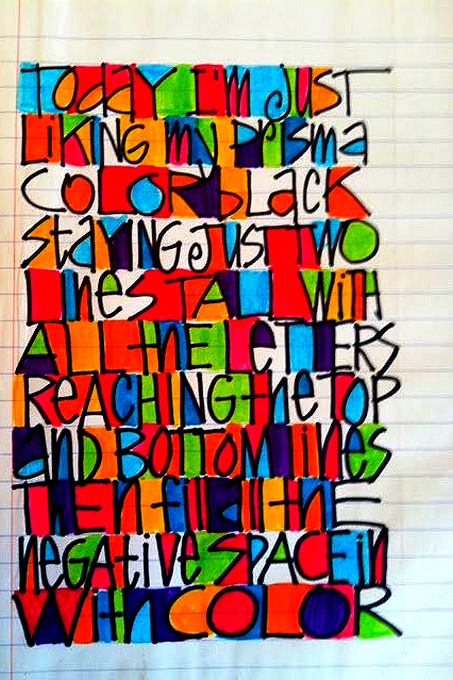 Today I'm just
LiKiNG my prisma
COLOR bLacK
staYiNG JUST TWO
Lines TALL WiTH
ALL tHE LeTTERS
REACHING tHe TOP
aND BOTTOM LiNes
THEN fill all tHE
neGAtive SPACE in
WitH COLOR